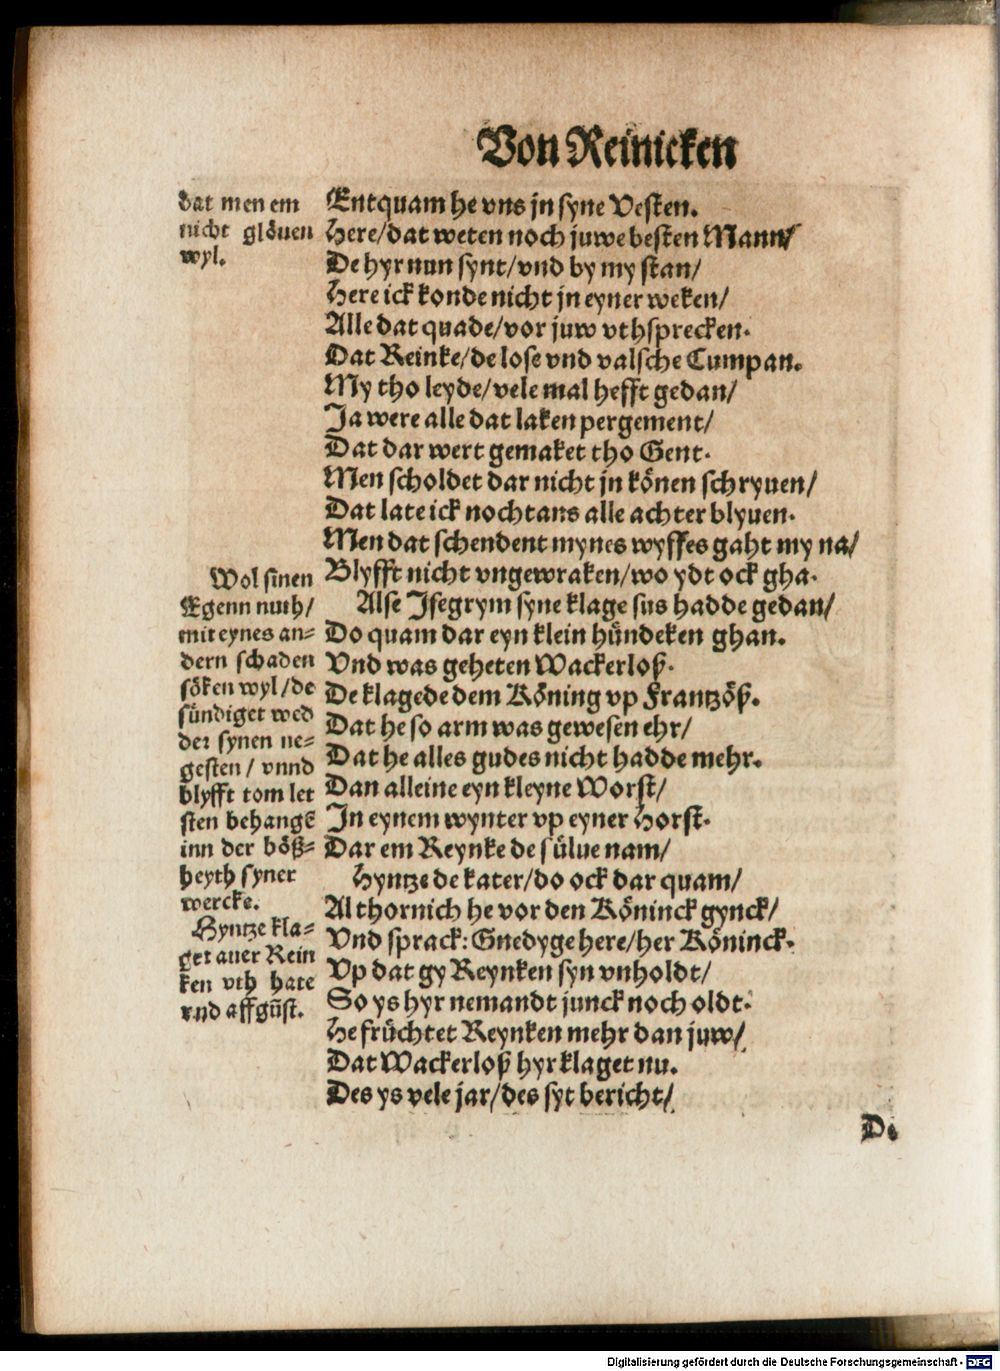 Von Reinicken
dat men em
nicht glöuen
wyl.
Entquam he vns jn syne Vesten.
Here/dat weten noch juwe besten Mann/
De hyr nun synt/vnd by my stan/
Here ick konde nicht jn eyner weken/
Alle dat quade/vor juw vthsprecken.
Dat Reinke/de lose vnd valsche Cumpan.
My tho leyde/vele mal hefft gedan/
Ja were alle dat laken pergement/
Dat dar wert gemaket tho Gent.
Men scholdet dar nicht jn könen schryuen/
Dat late ick nochtans alle achter blyuen.
Men dat schendent mynes wyffes gaht my na/
Blyfft nicht vngewraken/wo ydt ock gha.
Alse Jsegrym syne klage sus hadde gedan/
Do quam dar eyn klein hündeken ghan.
Vnd was geheten Wackerloß.
De klagede dem Köning vp Frantzöß.
Dat he so arm was gewesen ehr/
Dat he alles gudes nicht hadde mehr.
Dan alleine eyn kleyne Worst/
Jn eynem wynter vp eyner Horst.
Dar em Reynke de sülue nam/
Hyntze de kater/do ock dar quam/
Al thornich he vor den Köninck gynck/
Vnd sprack: Gnedyge here/her Köninck.
Vp dat gy Reynken syn vnholdt/
So ys hyr nemandt junck noch oldt.
He früchtet Reynken mehr dan juw/
Dat Wackerloß hyr klaget nu.
Des ys vele jar/des syt bericht/
Wol sinen
Egenn nuth/
mit eynes an=
dern schaden
söken wyl/de
sündiget wed
der synen ne=
gesten/ vnnd
blyfft tom let
sten behangē
inn der böß=
heyth syner
wercke.
Hyntze kla=
get auer Rein
ken vth hate
vnd affgüst.
De
Digitalisierung gefördert durch die Deutsche Forschungsgemeinschaft - DFG